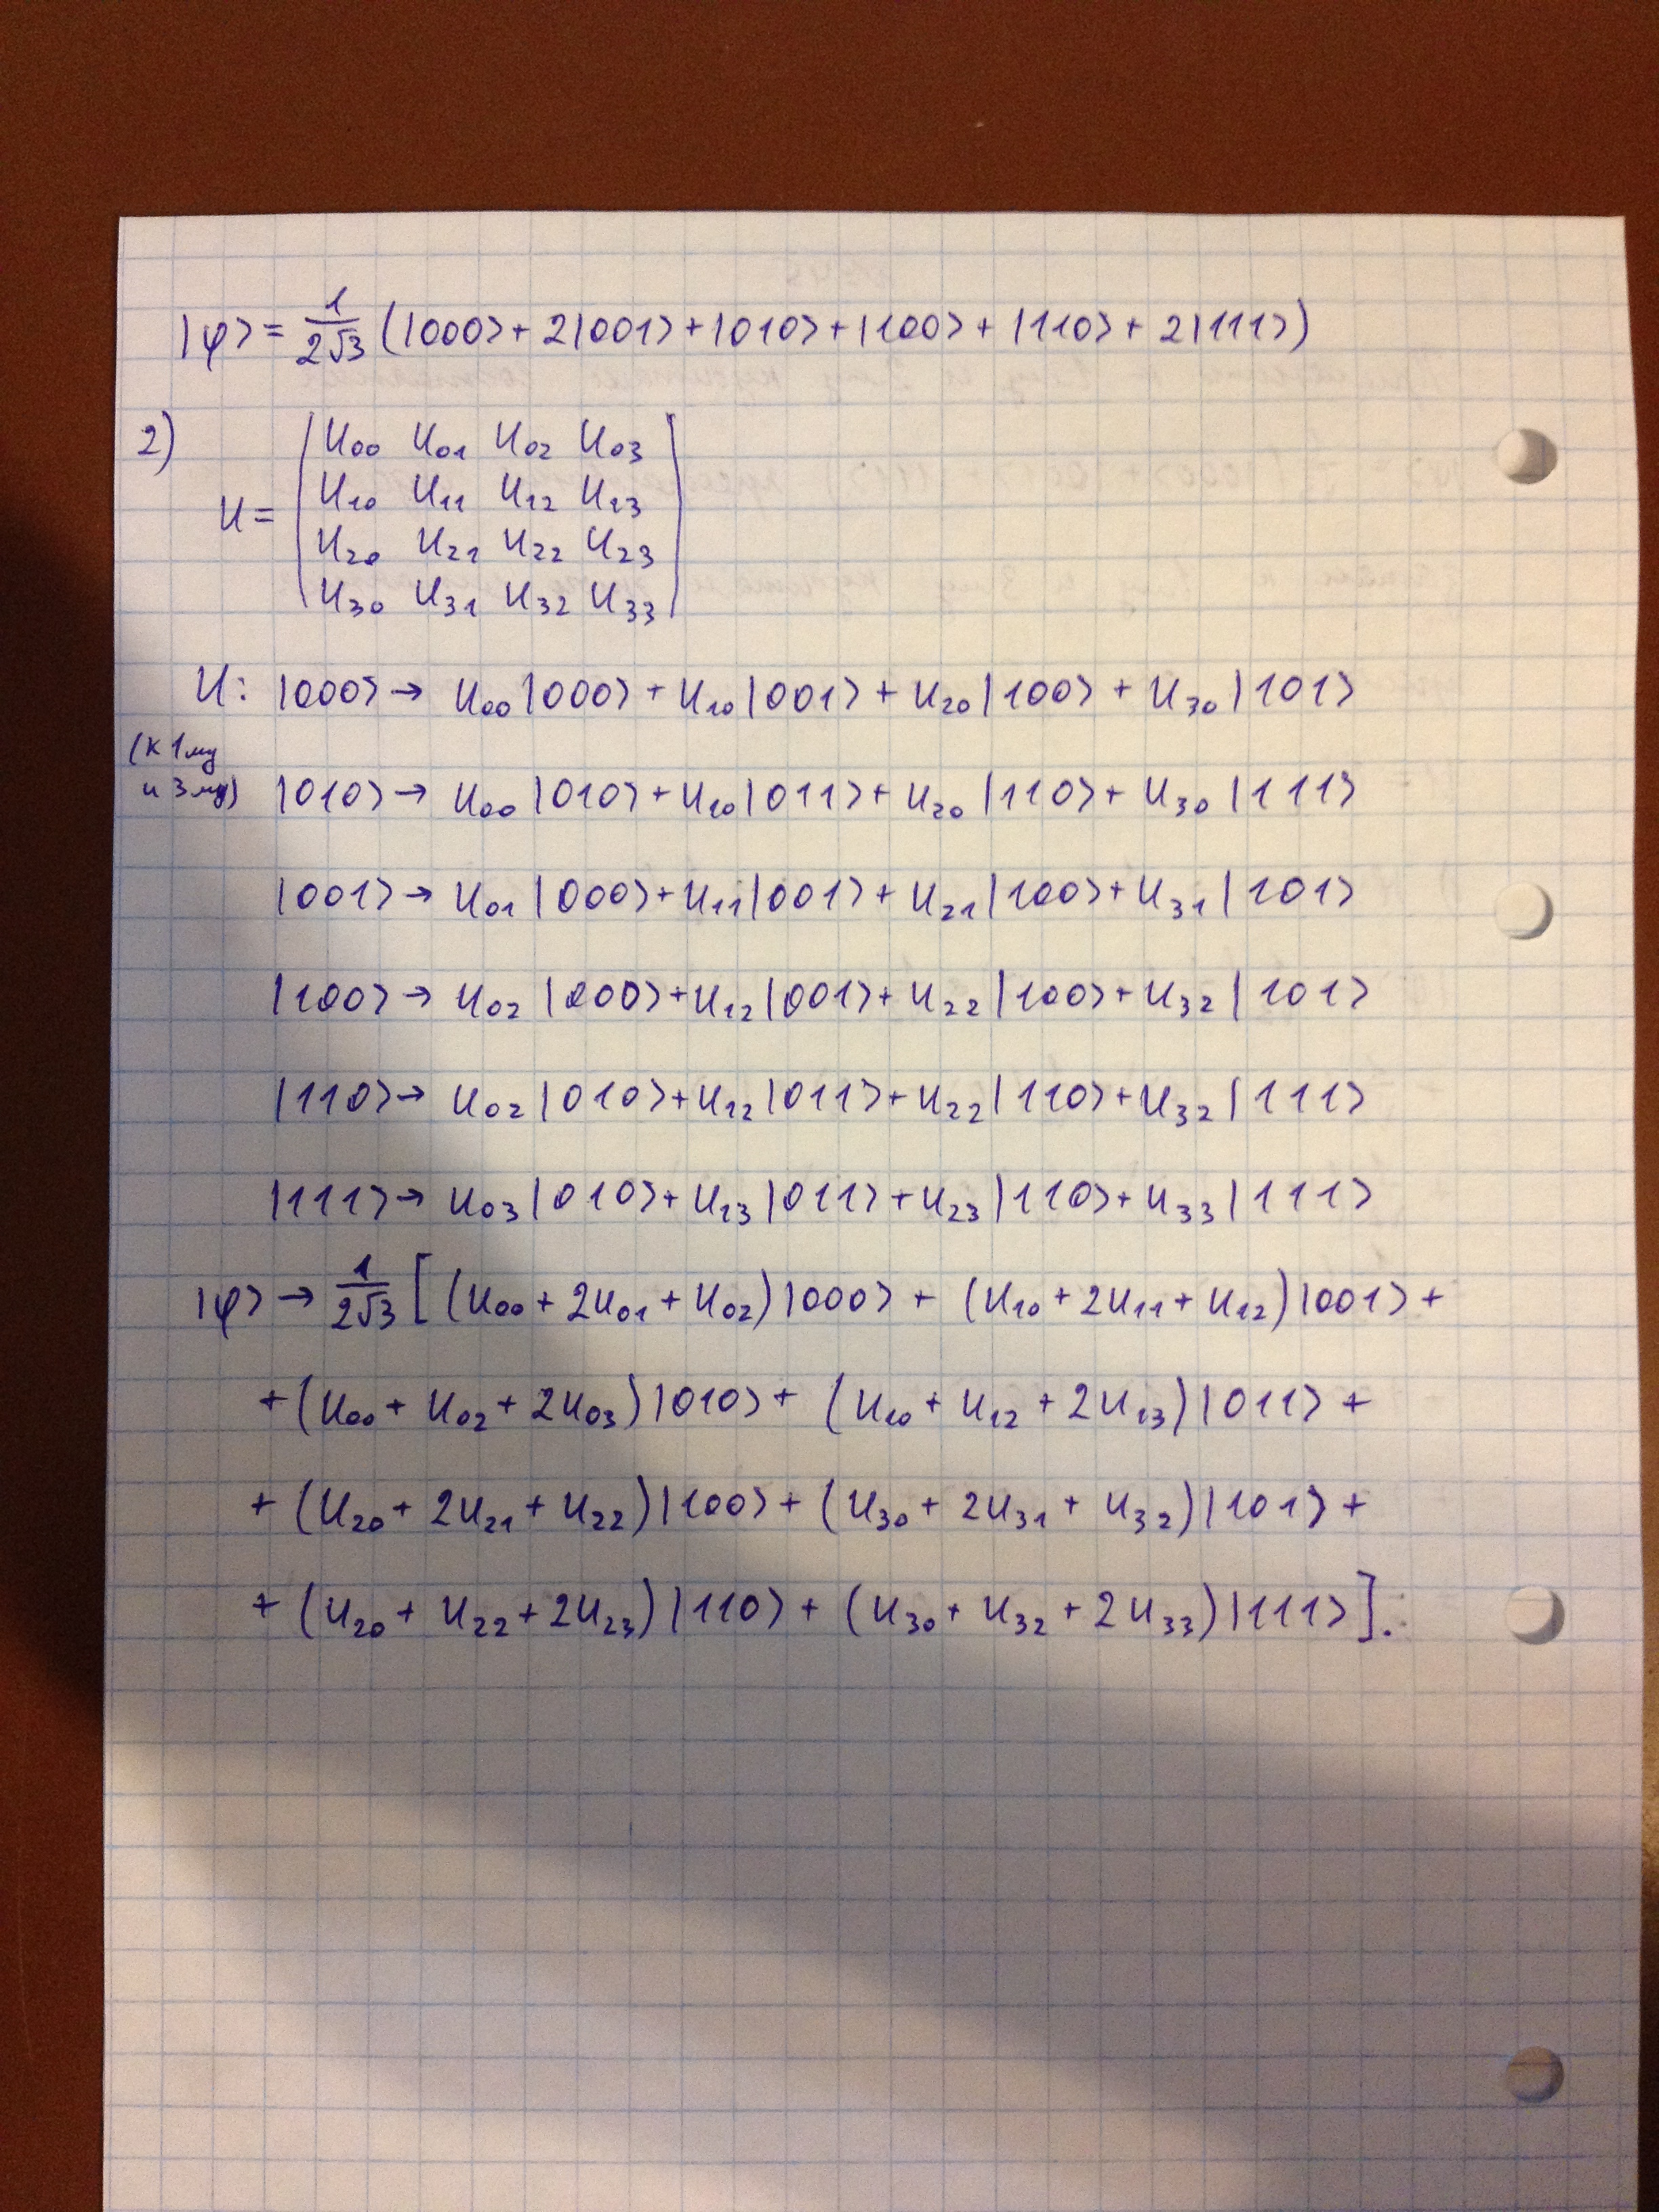 |φ> = 1/2√3 (|000> + 2|001> + |010> + |100> + |110> + 2|111>)
2)
U = (U₀₀ U₀₁ U₀₂ U₀₃
U₁₀ U₁₁ U₁₂ U₁₃
U₂₀ U₂₁ U₂₂ U₂₃
U₃₀ U₃₁ U₃₂ U₃₃)
U: |000> → U₀₀|000> + U₁₀|001> + U₂₀|100> + U₃₀|101>
(к 1му
и 3му) |010> → U₀₀|010> + U₁₀|011> + U₂₀|110> + U₃₀|111>
|001> → U₀₁|000> + U₁₁|001> + U₂₁|100> + U₃₁|101>
|100> → U₀₂|000> + U₁₂|001> + U₂₂|100> + U₃₂|101>
|110> → U₀₂|010> + U₁₂|011> + U₂₂|110> + U₃₂|111>
|111> → U₀₃|010> + U₁₃|011> + U₂₃|110> + U₃₃|111>
|φ> → 1/2√3 [(U₀₀ + 2U₀₁ + U₀₂)|000> + (U₁₀ + 2U₁₁ + U₁₂)|001> +
+ (U₀₀ + U₀₂ + 2U₀₃)|010> + (U₁₀ + U₁₂ + 2U₁₃)|011> +
+ (U₂₀ + 2U₂₁ + U₂₂)|100> + (U₃₀ + 2U₃₁ + U₃₂)|101> +
+ (U₂₀ + U₂₂ + 2U₂₃)|110> + (U₃₀ + U₃₂ + 2U₃₃)|111>].